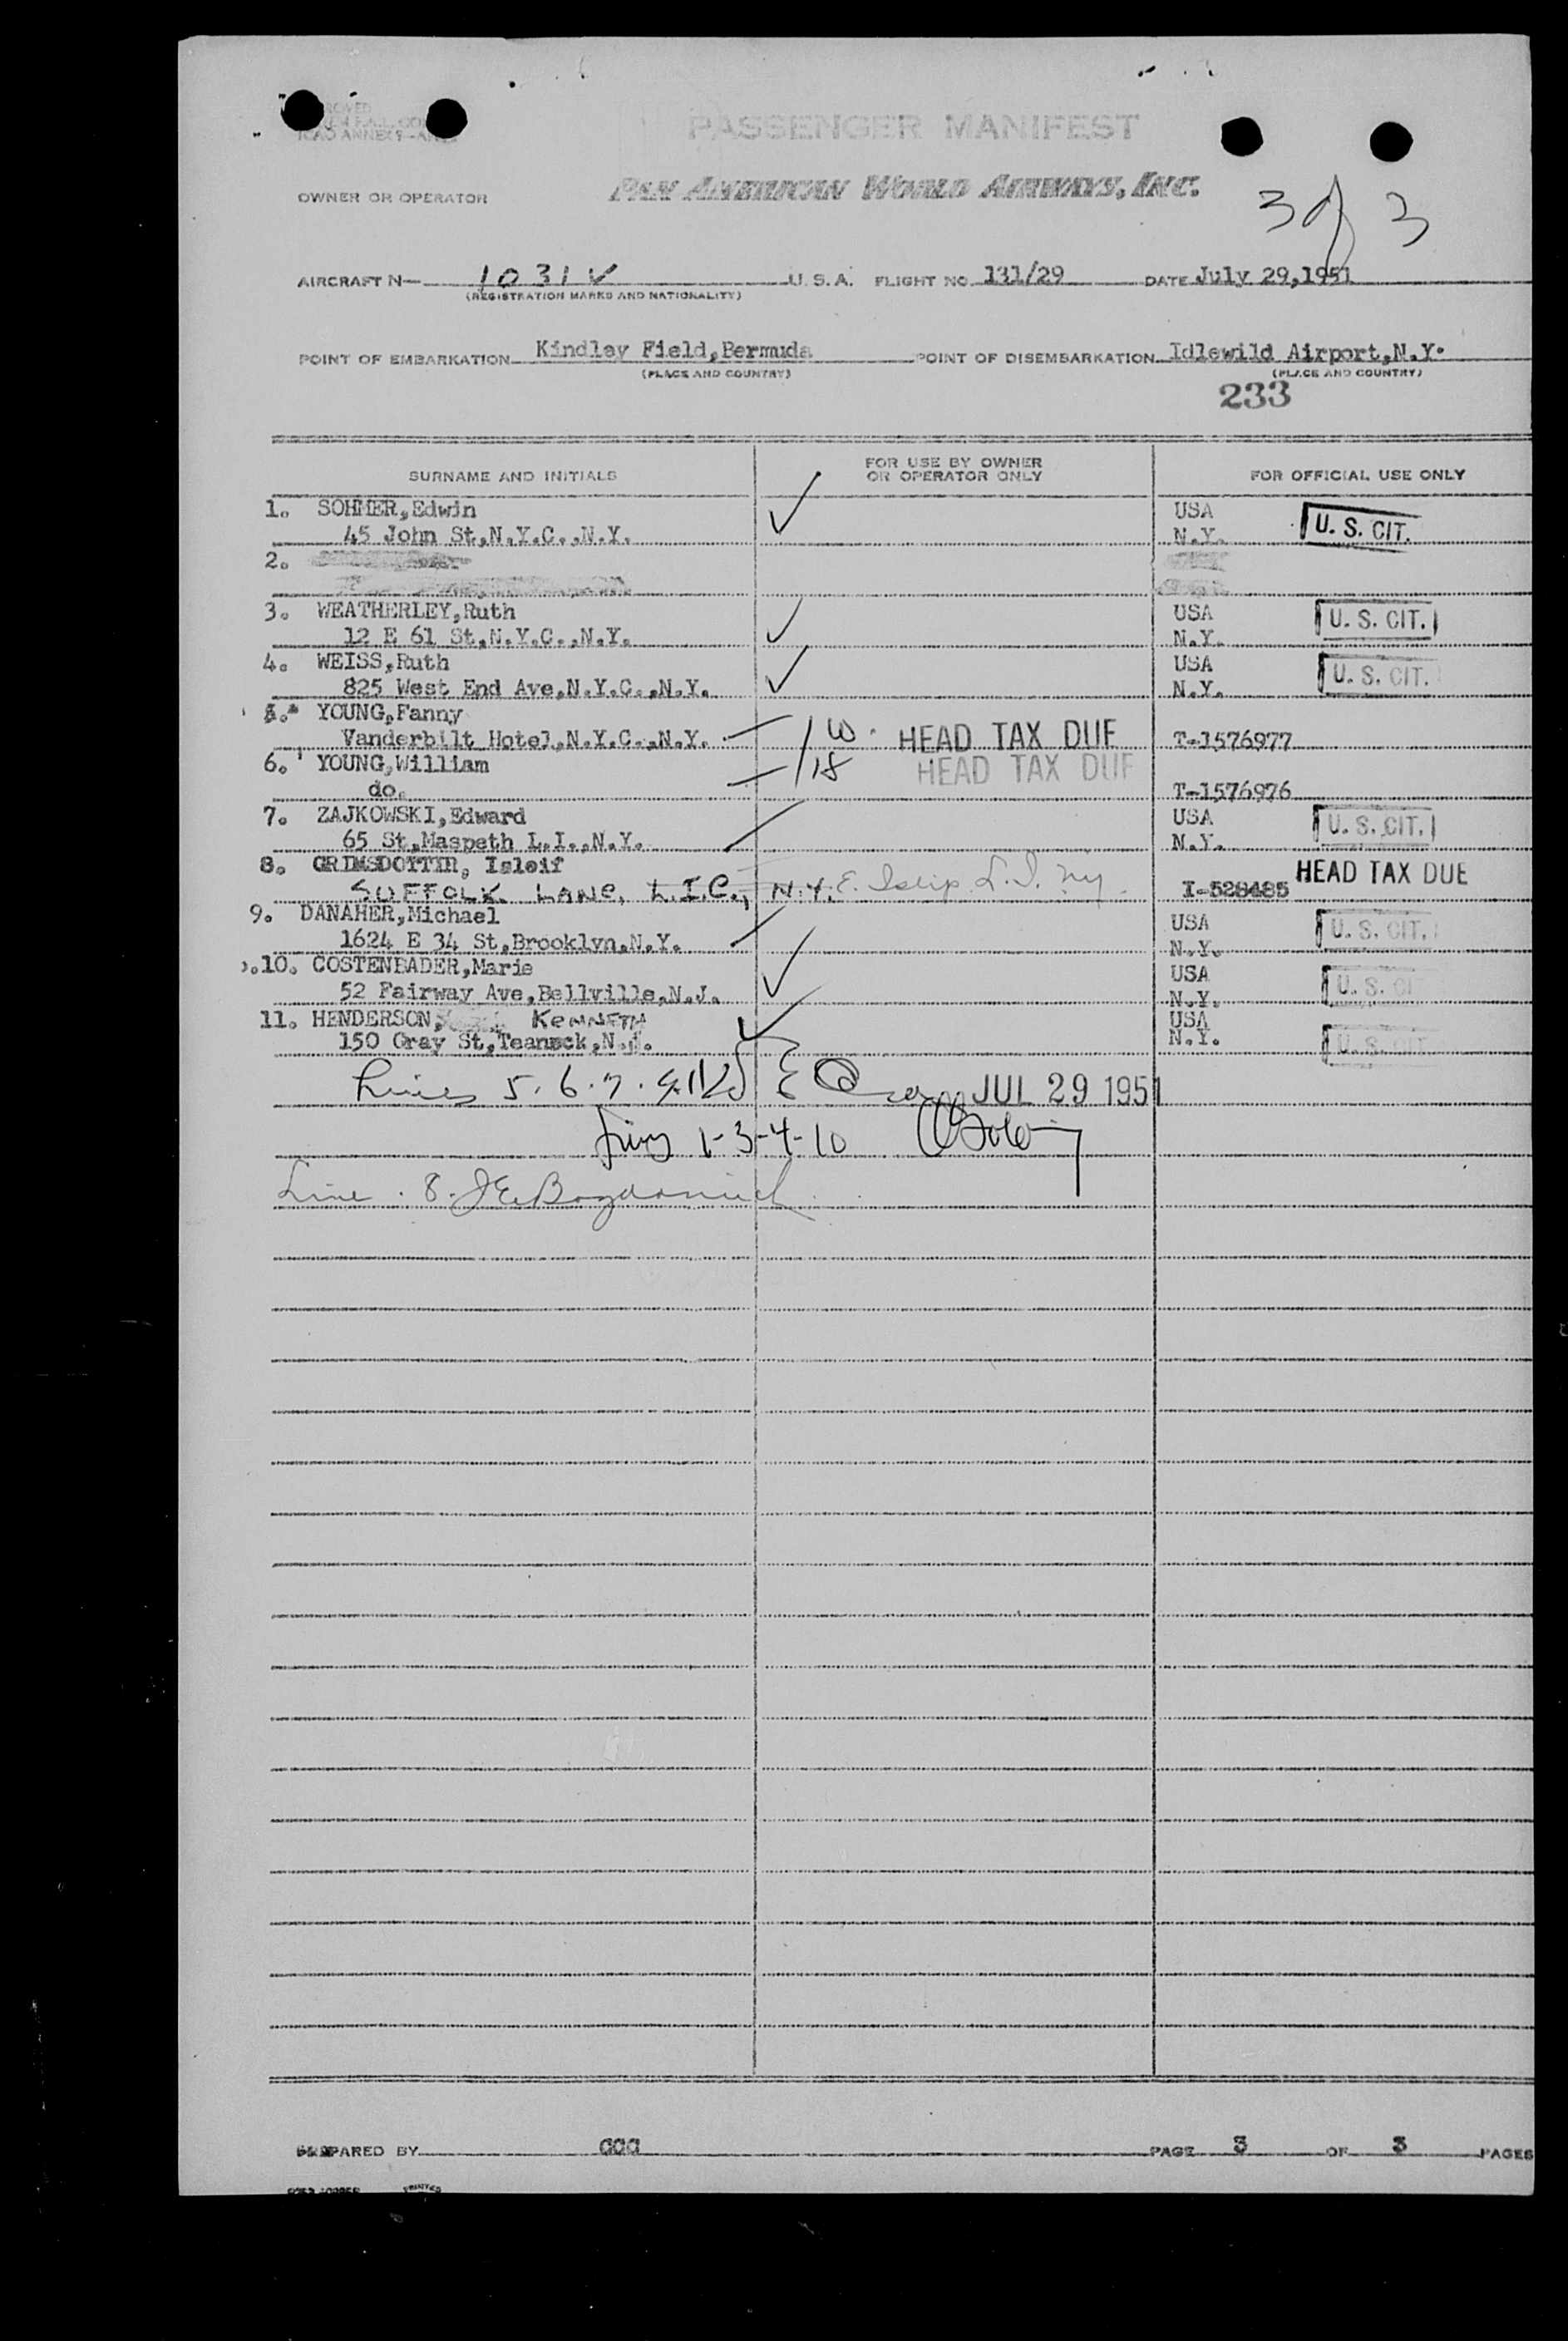 PASSENGER MANIFEST
OWNER OR OPERATOR PAN AMERICAN WORLD AIRWAYS, INC.
3 of 3
AIRCRAFT N— 1031V U. S. A. FLIGHT NO. 131/29 DATE July 29,1951
(REGISTRATION MARKS AND NATIONALITY)
POINT OF EMBARKATION Kindley Field,Bermuda POINT OF DISEMBARKATION Idlewild Airport,N.Y.
(PLACE AND COUNTRY) (PLACE AND COUNTRY)
233
SURNAME AND INITIALS FOR USE BY OWNER OR OPERATOR ONLY FOR OFFICIAL USE ONLY
1. SOHMER,Edwin USA
45 John St,N.Y.C.,N.Y. N.Y. U. S. CIT.
2.
3. WEATHERLEY,Ruth USA
12 E 61 St,N.Y.C.,N.Y. N.Y. U. S. CIT.
4. WEISS,Ruth USA
825 West End Ave,N.Y.C.,N.Y. N.Y. U. S. CIT.
5. YOUNG,Fanny
Vanderbilt Hotel,N.Y.C.,N.Y. HEAD TAX DUE T-1576977
6. YOUNG,William 18 HEAD TAX DUE
do. T-1576976
7. ZAJKOWSKI,Edward USA
65 St,Maspeth L.I.,N.Y. N.Y. U. S. CIT.
8. GRIMSDOTTIR, Isleif HEAD TAX DUE
SUFFOLK LANE, L.I.C., N.Y. E. Islip L.I. NY. I-528485
9. DANAHER,Michael USA
1624 E 34 St,Brooklyn,N.Y. N.Y. U. S. CIT.
10. COSTENBADER,Marie USA
52 Fairway Ave,Bellville,N.J. N.Y. U. S. CIT
11. HENDERSON, KENNETH USA
150 Gray St,Teaneck,N.J. N.Y. U. S. CIT
Lines 5. 6. 7. 9. 11 JUL 29 1951
Lines 1-3-4-10
Line 8.
PREPARED BY GGG PAGE 3 OF 3 PAGES